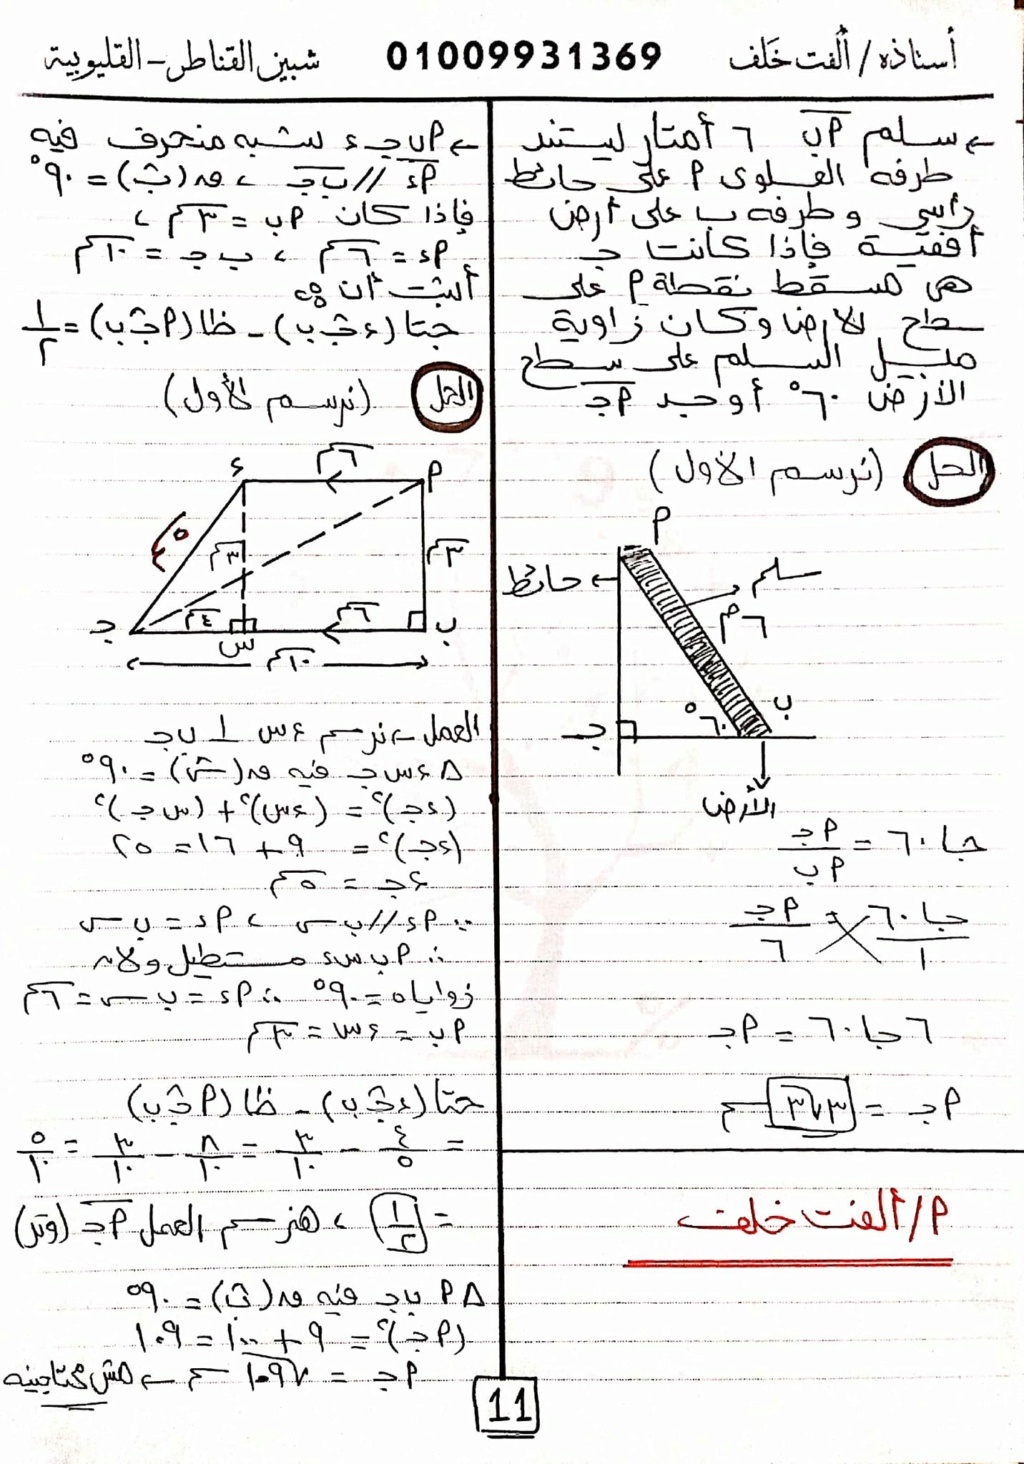 أستاذه/ ألفت خلف
01009931369
شبين القناطر - القليوبية
← سلم أب ٦ أمتار ليستند
طرفه العلوى أ على حائط
رأسي وطرفه ب على أرض
أفقية فإذا كانت جـ
هى مسقط نقطة أ على
سطح الأرض وكان زاوية
ميل السلم على سطح
الأرض ٦٠° أوجد أجـ
الحل (نرسم الأول)
أ
حائط ←
سلم
٦م
ب
٦٠°
جـ
الأرض
جا٦٠ = أجـ/أب
جا٦٠/١ = أجـ/٦
٦جا٦٠ = أجـ
أجـ = ٣√٣ م
م/ألفت خلف
← أب جـ ء شبه منحرف فيه
أء // ب جـ ، ق(ب) = ٩٠°
فإذا كان أب = ٣سم ،
أء = ٦سم ، ب جـ = ١٠سم
أثبت أن :
جتا(ء جـ ب) - ظا(أ جـ ب) = ١/٢
الحل (نرسم الأول)
٦سم
ء
أ
٥سم
٣سم
٣سم
٤سم
٦سم
جـ
س
ب
١٠سم
العمل ← نرسم ء س ⊥ ب جـ
∆ ء س جـ فيه ق(س) = ٩٠°
(ء جـ)² = (ء س)² + (س جـ)²
(ء جـ)² = ٩ + ١٦ = ٢٥
ء جـ = ٥سم
∵ أء // ب س ، أء = ب س
∴ أ ب س ء مستطيل ولأن
زواياه = ٩٠° ∴ أء = ب س = ٦سم
أب = ء س = ٣سم
جتا(ء جـ ب) - ظا(أ جـ ب)
= ٤/٥ - ٣/١٠ = ٨/١٠ - ٣/١٠ = ٥/١٠
= ١/٢ ، هنرسم العمل أجـ (وتر)
∆ أ ب جـ فيه ق(ب) = ٩٠°
(أجـ)² = ٩ + ١٠٠ = ١٠٩
أجـ = √١٠٩ سم ← مش محتاجينه
11